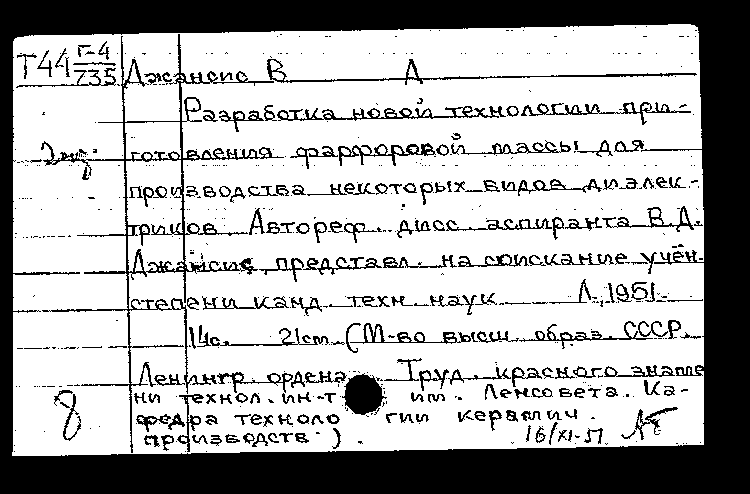 Т44 Г-4/735 Джансис В Д
Разработка новой технологии при-
готовления фарфоровой массы для
производства некоторых видов диэлек-
триков. Автореф. дисс. аспиранта В.Д.
Джансис, представл. на соискание учён.
степени канд. техн. наук Л, 1951.
14с. 21cm (М-во высш. образ. СССР.
Ленингр. ордена Труд. красного знаме
ни технол. ин-т им. Ленсовета. Ка-
федра техноло гии керамич.
производств).
16/XI-51
8